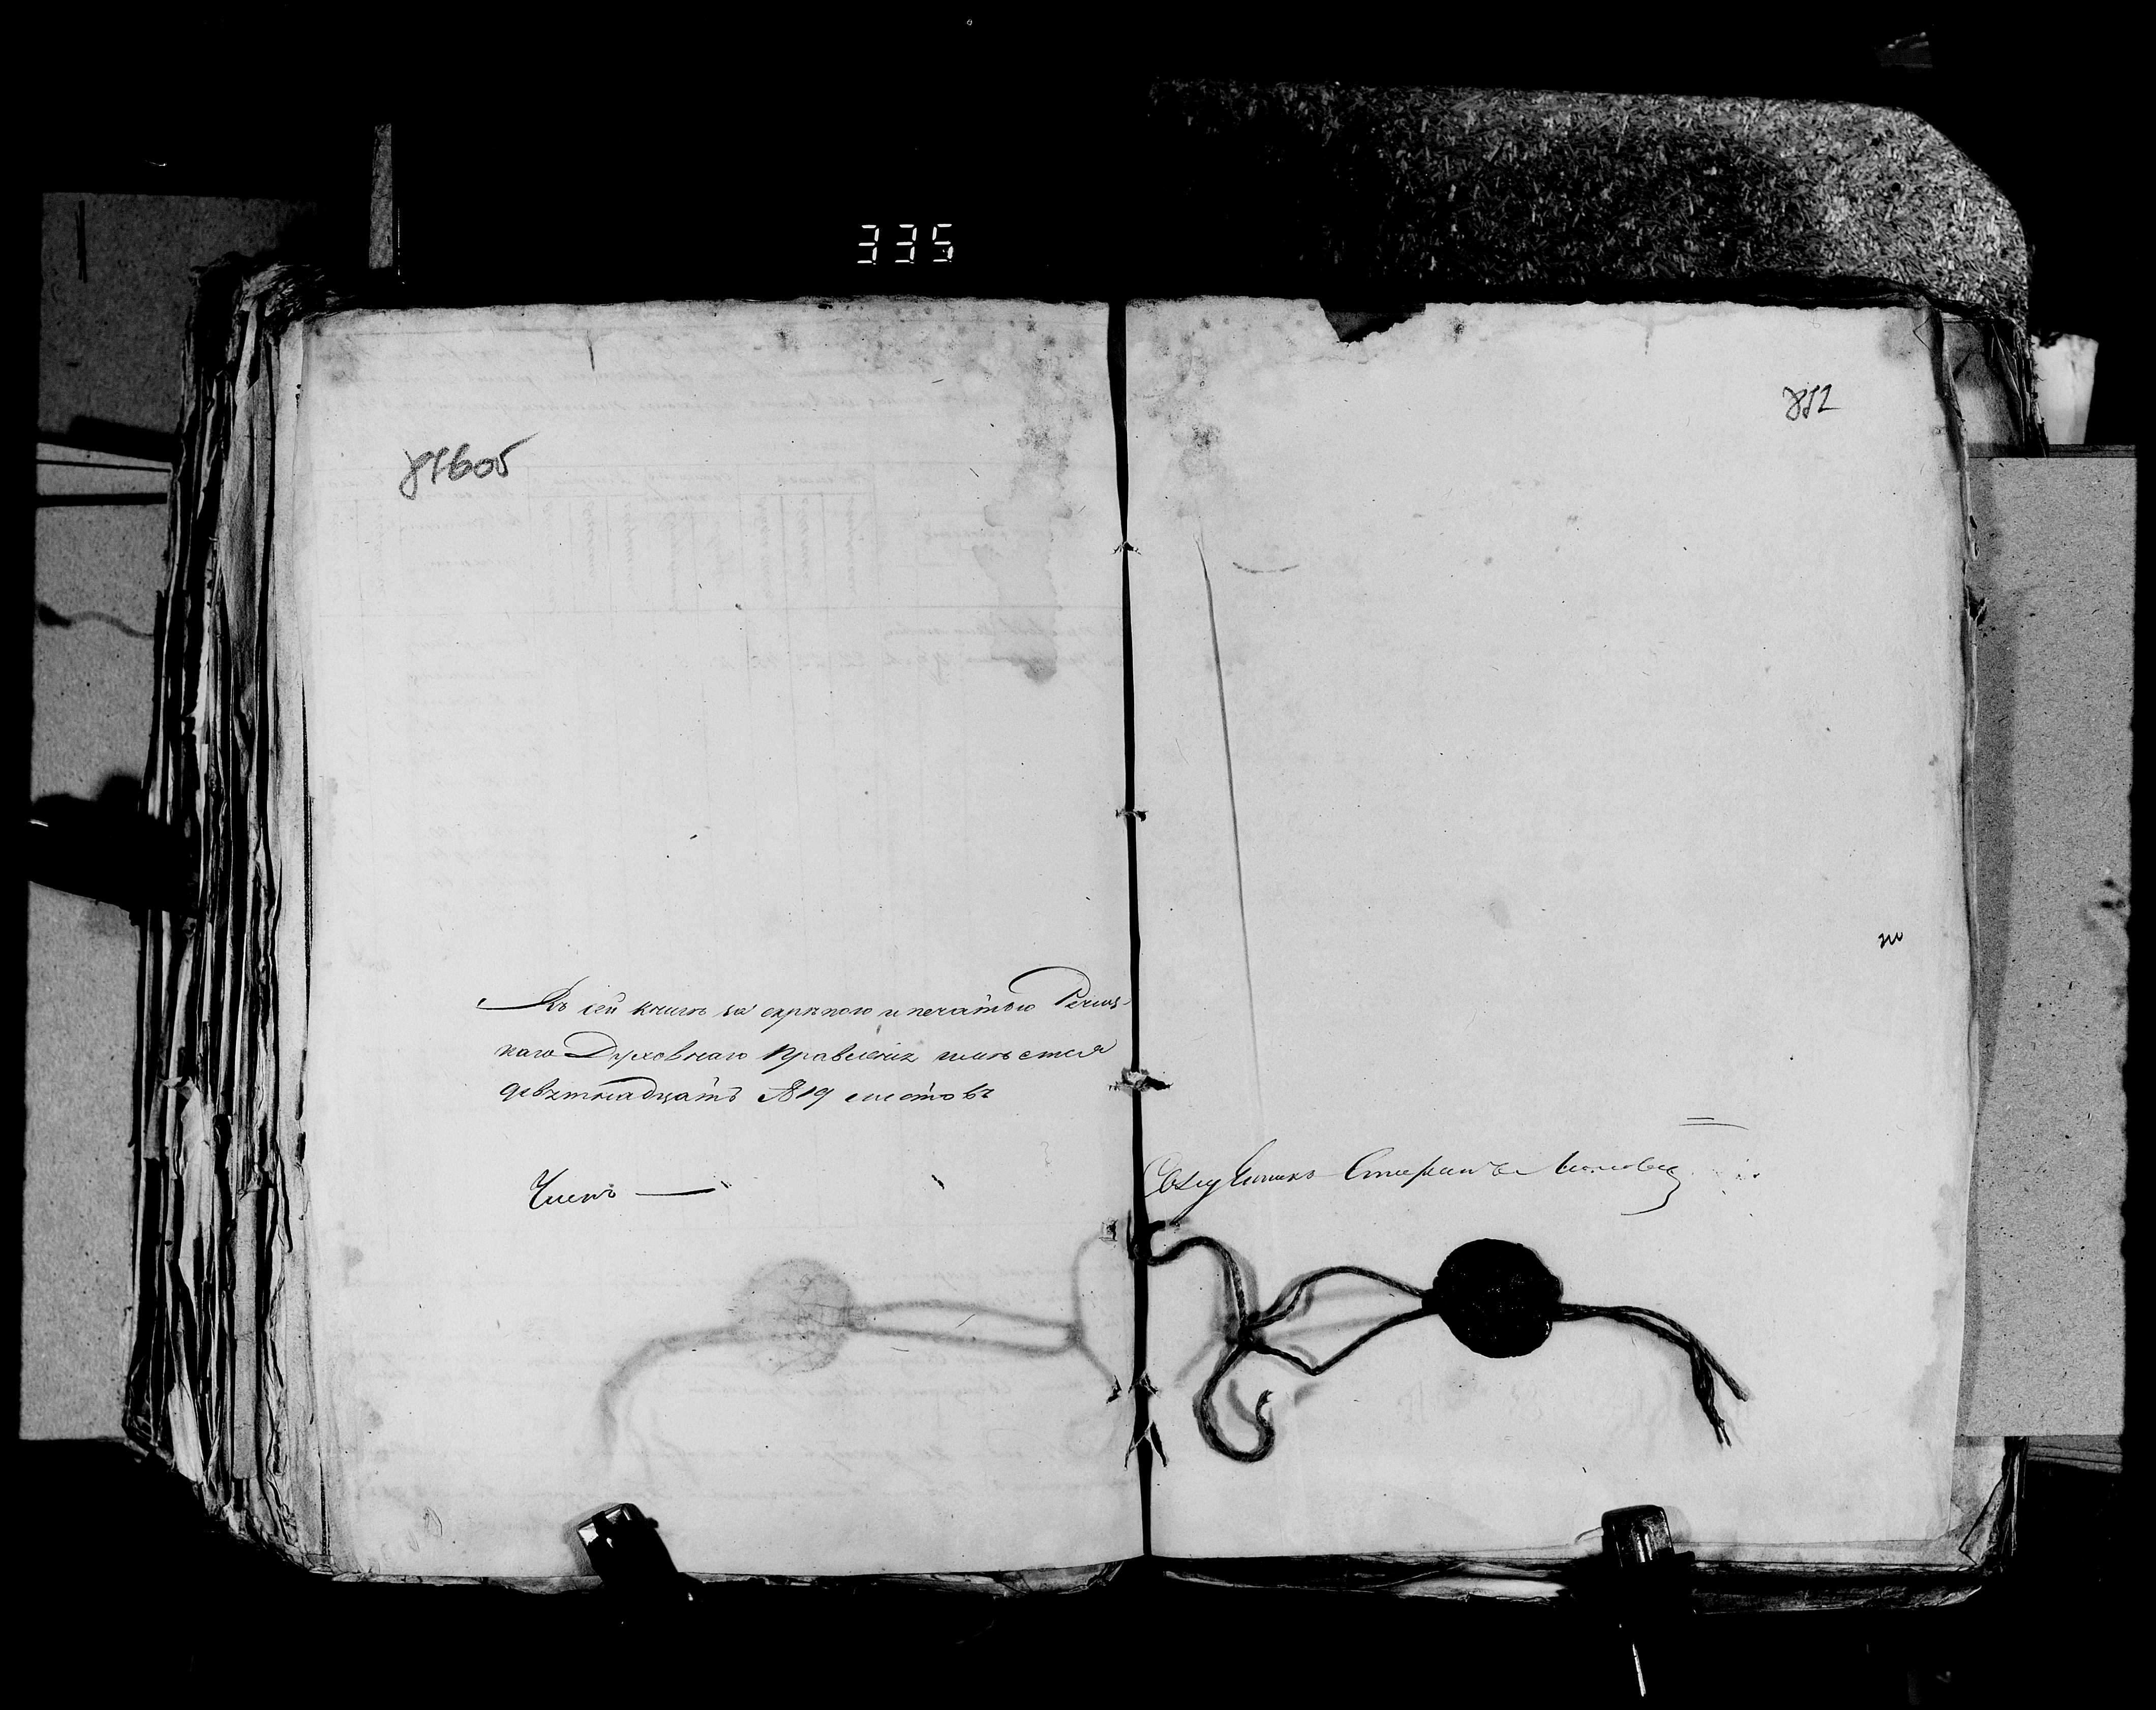 335
852
Въ сей книгѣ за скрѣпою и печатью Речиц-
каго Духовнаго Правленія имѣется
девятнадцать № 19 листовъ
Членъ — Священникъ Стефанъ